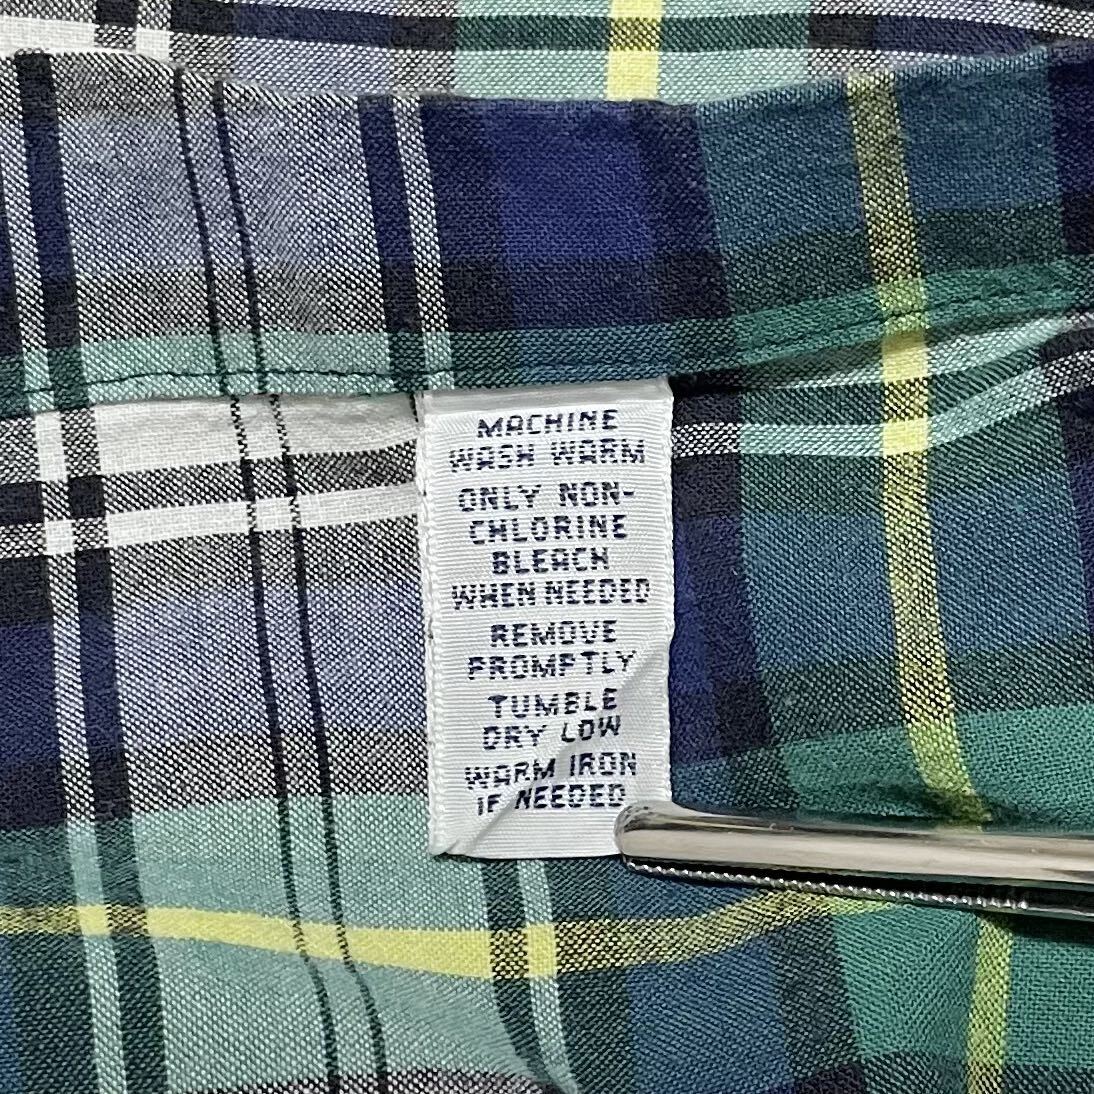 MACHINE
WASH WARM
ONLY NON-
CHLORINE
BLEACH
WHEN NEEDED
REMOVE
PROMPTLY
TUMBLE
DRY LOW
WARM IRON
IF NEEDED